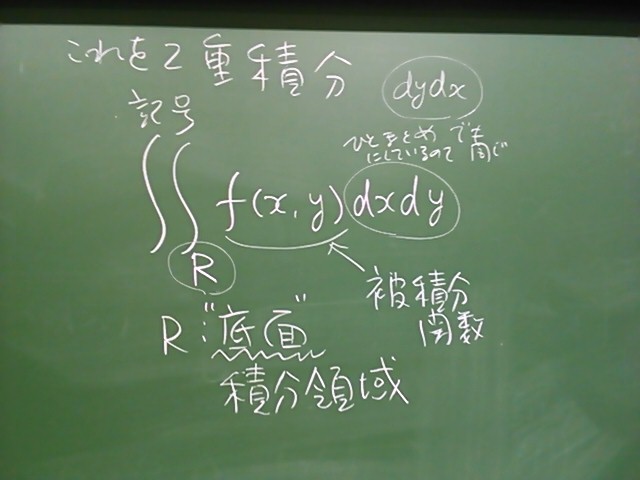 これを2重積分
記号
dydx
ひとまとめ
にしているので
でも
同じ
∬ f(x,y)dxdy
R
被積分
関数
R:"底面"
積分領域